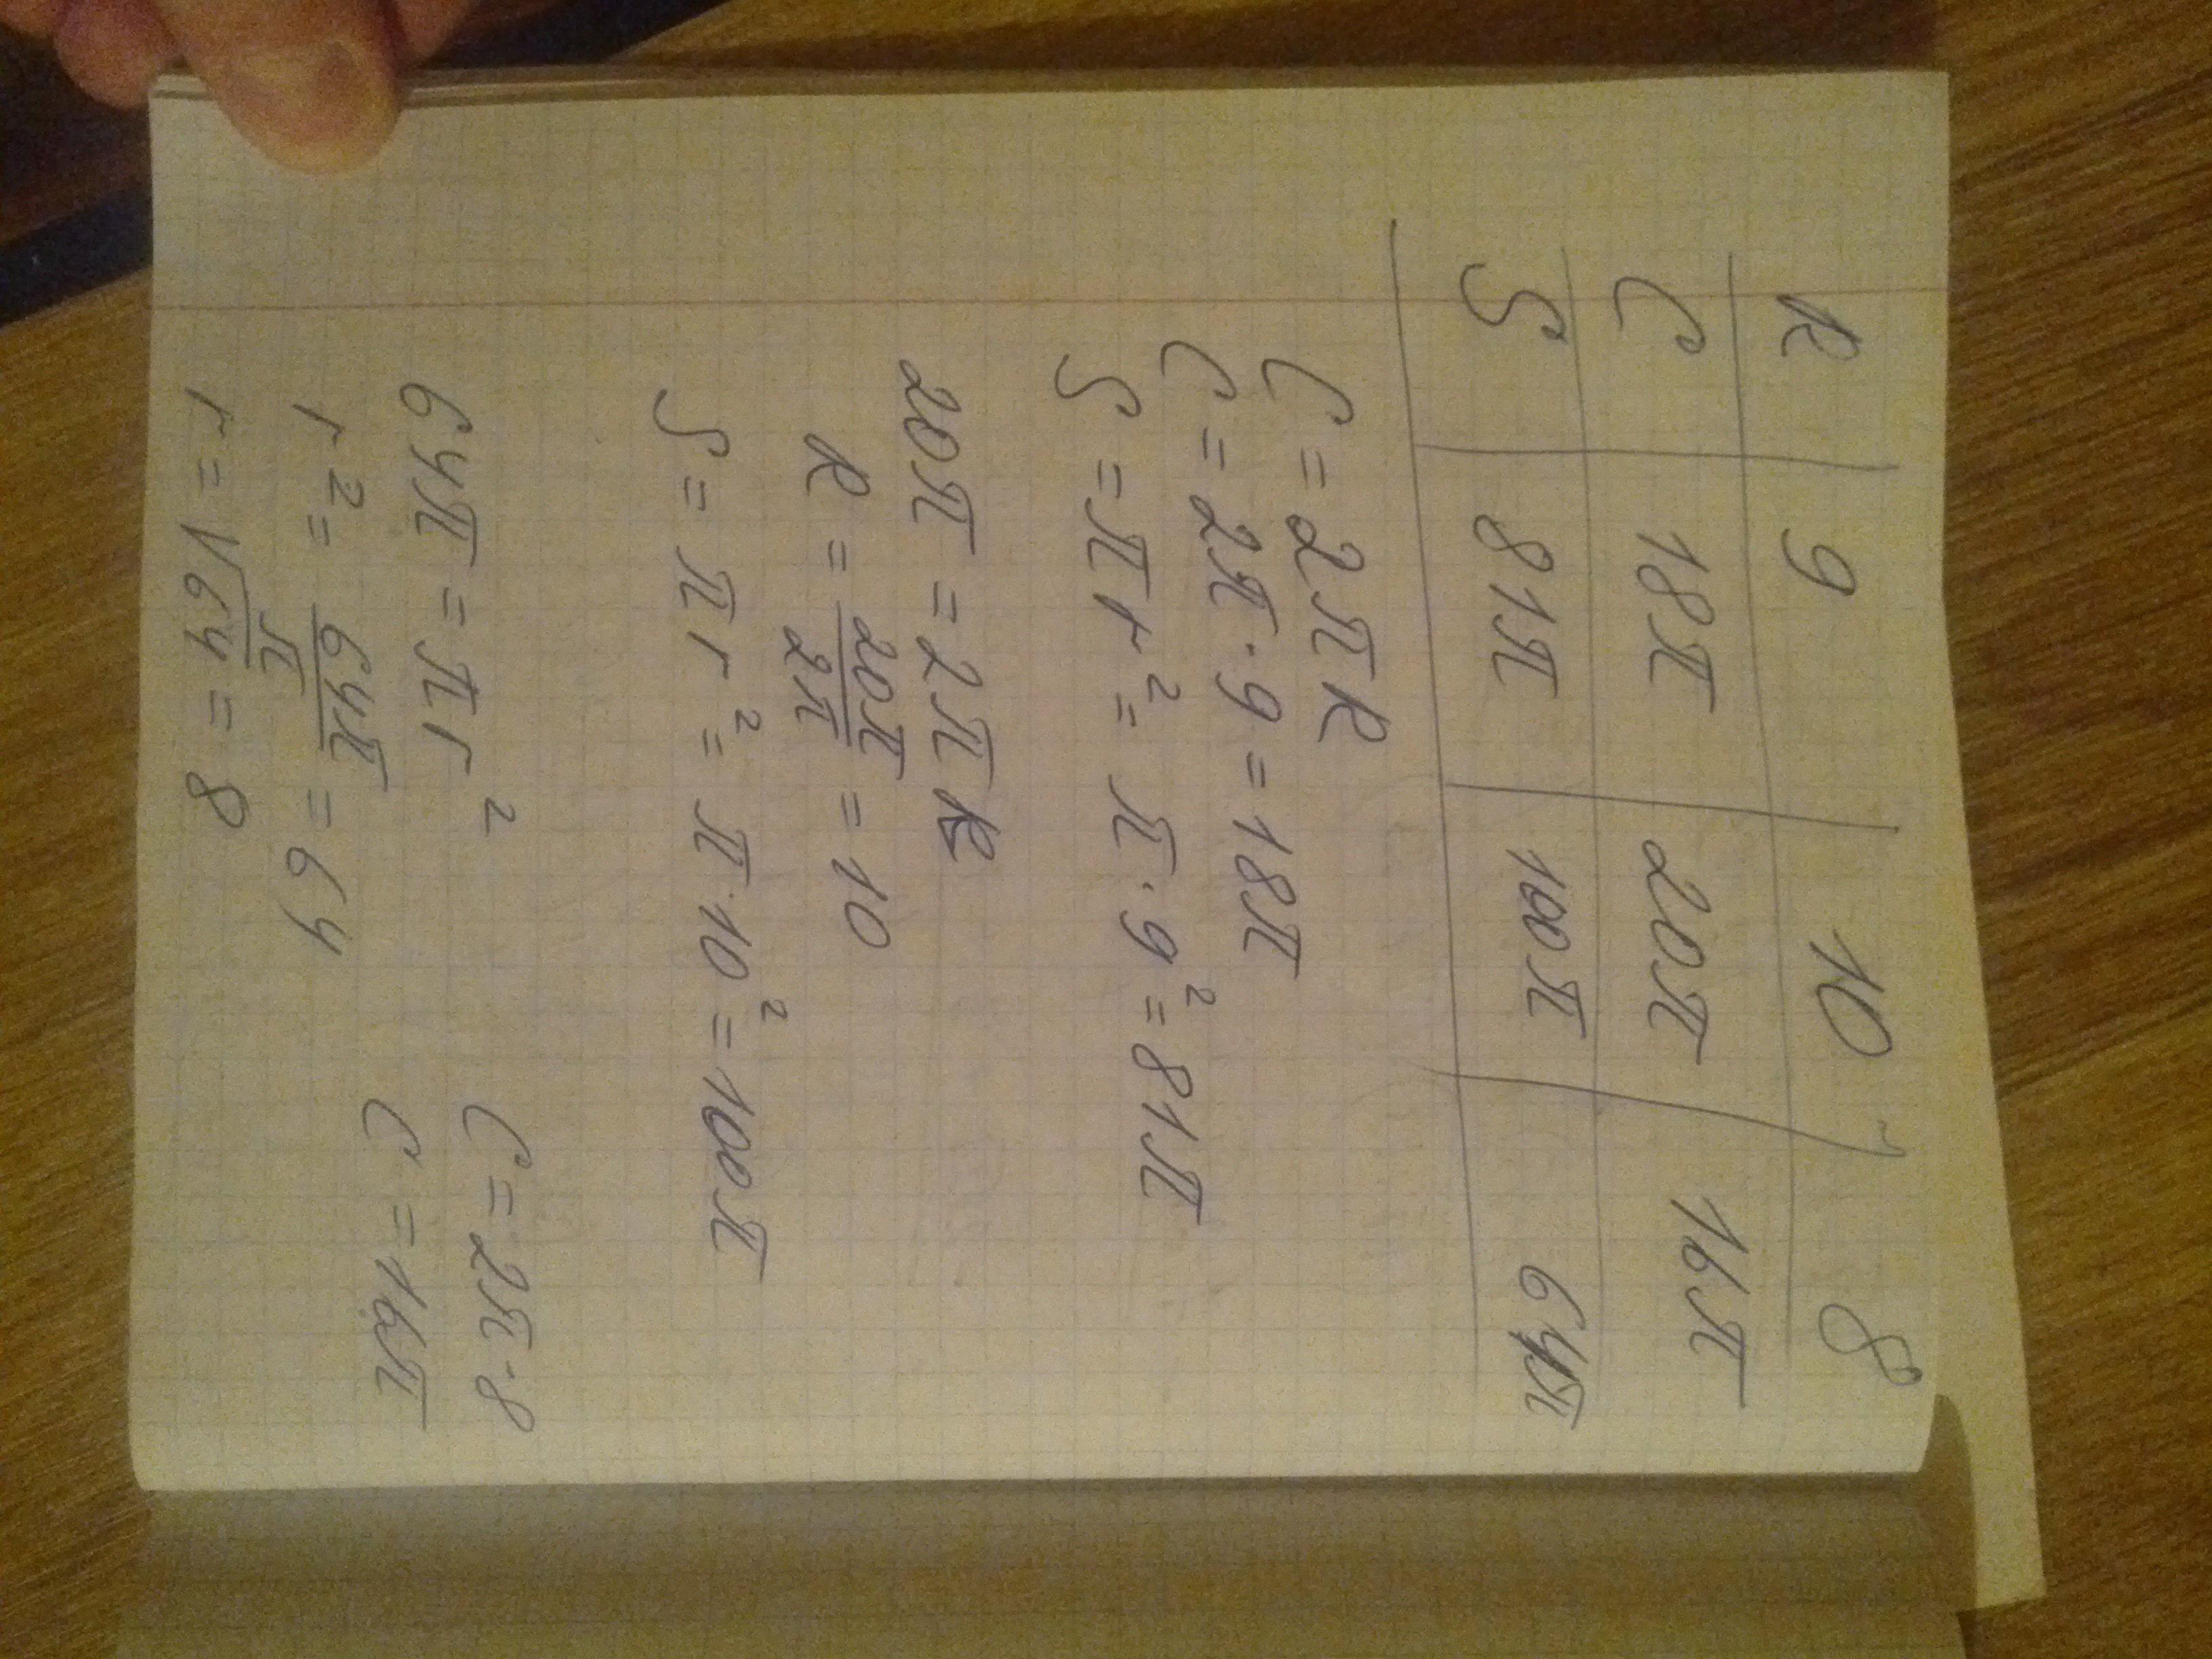 R 9 10 8
C 18π 20π 16π
S 81π 100π 64π
C = 2πR
C = 2π·9 = 18π
S = πr² = π·9² = 81π
20π = 2πR
R = 20π/2π = 10
S = πr² = π·10² = 100π
64π = πr² C = 2π·8
r² = 64π/π = 64 C = 16π
r = √64 = 8